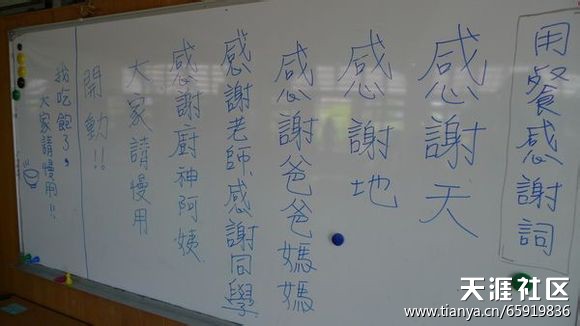 用餐感謝詞
感謝天
感謝地
感謝爸爸媽媽
感謝老師,感謝同學
感謝廚神阿姨
大家請慢用
開動!!
我吃飽了,
大家請慢用!!
天涯社区
www.tianya.cn/65919836